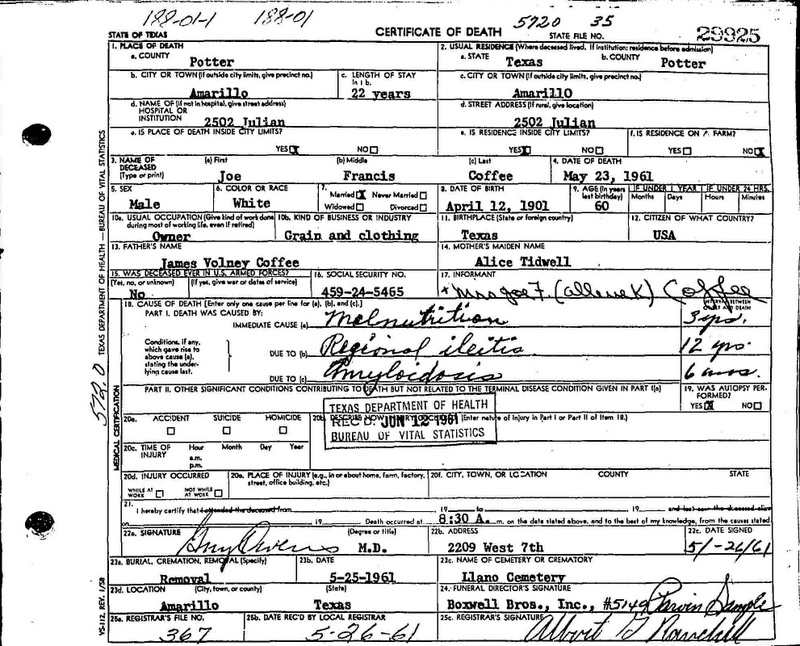 188-01-1 188-01 5720 35
STATE OF TEXAS CERTIFICATE OF DEATH STATE FILE NO. 29925
1. PLACE OF DEATH 2. USUAL RESIDENCE (Where deceased lived. If institution: residence before admission)
a. COUNTY Potter a. STATE Texas b. COUNTY Potter
b. CITY OR TOWN (If outside city limits, give precinct no.) c. LENGTH OF STAY in 1 b. c. CITY OR TOWN (If outside city limits, give precinct no.)
Amarillo 22 years Amarillo
d. NAME OF (If not in hospital, give street address) HOSPITAL OR INSTITUTION d. STREET ADDRESS (If rural, give location)
2502 Julian 2502 Julian
e. IS PLACE OF DEATH INSIDE CITY LIMITS? e. IS RESIDENCE INSIDE CITY LIMITS? f. IS RESIDENCE ON A FARM?
YES X NO YES X NO YES NO X
3. NAME OF DECEASED (Type or print) (a) First (b) Middle (c) Last 4. DATE OF DEATH
Joe Francis Coffee May 23, 1961
5. SEX 6. COLOR OR RACE 7. Married X Never Married Widowed Divorced 8. DATE OF BIRTH 9. AGE (In years last birthday) IF UNDER 1 YEAR Months Days IF UNDER 24 HRS. Hours Minutes
Male White April 12, 1901 60
10a. USUAL OCCUPATION (Give kind of work done during most of working life, even if retired) 10b. KIND OF BUSINESS OR INDUSTRY 11. BIRTHPLACE (State or foreign country) 12. CITIZEN OF WHAT COUNTRY?
Owner Grain and clothing Texas USA
13. FATHER'S NAME 14. MOTHER'S MAIDEN NAME
James Volney Coffee Alice Tidwell
15. WAS DECEASED EVER IN U.S. ARMED FORCES? 16. SOCIAL SECURITY NO. 17. INFORMANT
(Yes, no, or unknown) (If yes, give war or dates of service)
No 459-24-5465 Mrs Joe F. (Allene K) Coffee
18. CAUSE OF DEATH [Enter only one cause per line for (a), (b), and (c).] INTERVAL BETWEEN ONSET AND DEATH
PART I. DEATH WAS CAUSED BY:
IMMEDIATE CAUSE (a) Malnutrition 3 yrs.
Conditions, if any, which gave rise to above cause (a), stating the underlying cause last.
DUE TO (b) Regional ileitis 12 yrs.
DUE TO (c) Amyloidosis 6 mos.
PART II. OTHER SIGNIFICANT CONDITIONS CONTRIBUTING TO DEATH BUT NOT RELATED TO THE TERMINAL DISEASE CONDITION GIVEN IN PART I(a) 19. WAS AUTOPSY PERFORMED?
YES X NO
TEXAS DEPARTMENT OF HEALTH
REC'D JUN 12 1961
BUREAU OF VITAL STATISTICS
20a. ACCIDENT SUICIDE HOMICIDE 20b. DESCRIBE HOW INJURY OCCURRED (Enter nature of injury in Part I or Part II of item 18.)
20c. TIME OF INJURY Hour Month Day Year
a.m.
p.m.
20d. INJURY OCCURRED 20e. PLACE OF INJURY (e.g., in or about home, farm, factory, street, office building, etc.) 20f. CITY, TOWN, OR LOCATION COUNTY STATE
WHILE AT WORK NOT WHILE AT WORK
21. I hereby certify that I attended the deceased from 19 to 19 and last saw the deceased alive
on 19 Death occurred at 8:30 A. m. on the date stated above, and to the best of my knowledge, from the causes stated
22a. SIGNATURE (Degree or title) 22b. ADDRESS 22c. DATE SIGNED
Owens M.D. 2209 West 7th 5/-26/61
23a. BURIAL, CREMATION, REMOVAL (Specify) 23b. DATE 23c. NAME OF CEMETERY OR CREMATORY
Removal 5-25-1961 Llano Cemetery
23d. LOCATION (City, town, or county) (State) 24. FUNERAL DIRECTOR'S SIGNATURE
Amarillo Texas Boxwell Bros., Inc., #5149
25a. REGISTRAR'S FILE NO. 25b. DATE REC'D BY LOCAL REGISTRAR 25c. REGISTRAR'S SIGNATURE
367 5-26-61 Albert
VS-112, REV. 1/58
572.0
TEXAS DEPARTMENT OF HEALTH — BUREAU OF VITAL STATISTICS
MEDICAL CERTIFICATION